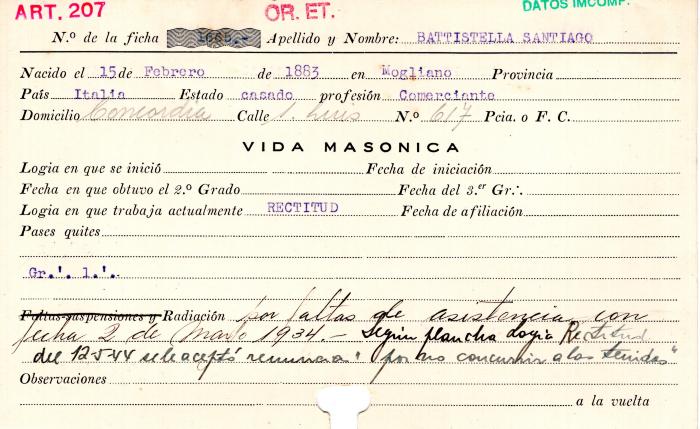 ART. 207
OR. ET.
DATOS IMCOMP.
N.º de la ficha Apellido y Nombre: BATTISTELLA SANTIAGO
Nacido el 15 de Febrero de 1883 en Mogliano Provincia
País Italia Estado casado profesión Comerciante
Domicilio Concordia Calle S. Luis N.º 617 Pcia. o F. C.
VIDA MASONICA
Logia en que se inició Fecha de iniciación
Fecha en que obtuvo el 2.º Grado Fecha del 3.er Gr∴
Logia en que trabaja actualmente RECTITUD Fecha de afiliación
Pases quites
Gr.'. 1.'.
Faltas-suspensiones y Radiación por faltas de asistencia con
fecha 2 de Marzo 1934.- Según plancha Logia Rectitud
del 12-5-44 se le aceptó renuncia "por no concurrir a las tenidas"
Observaciones
a la vuelta